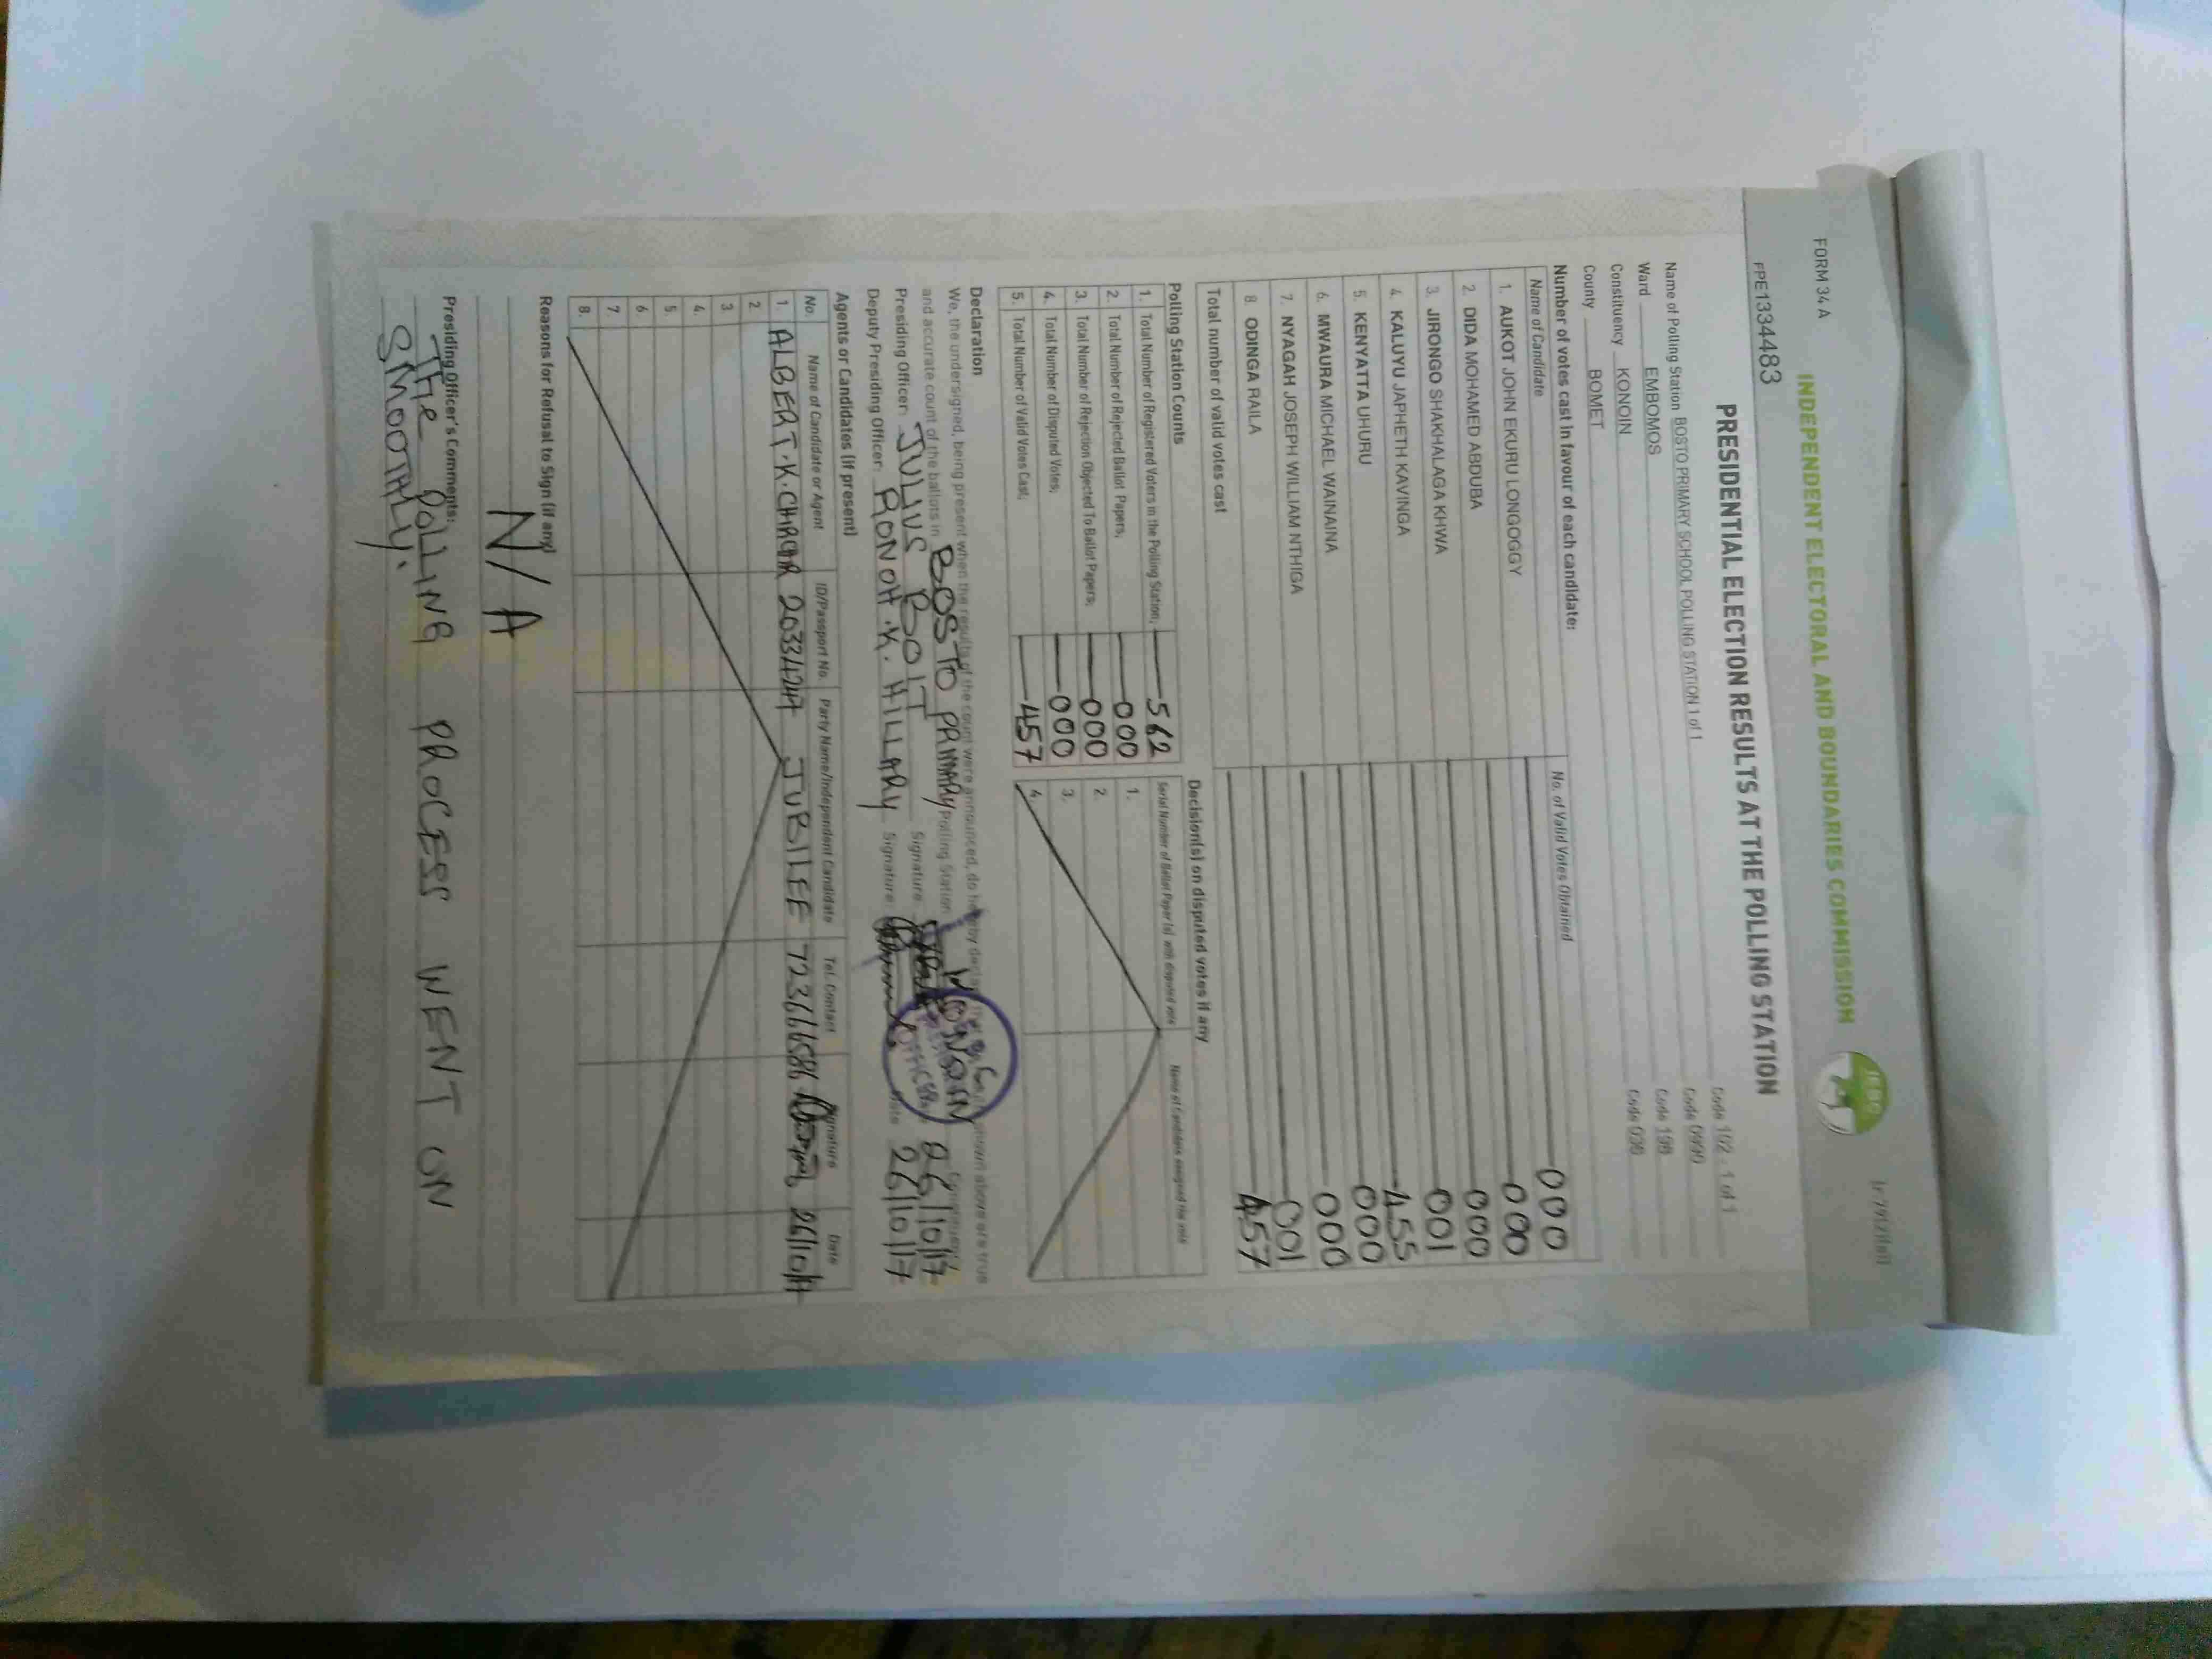 FORM 34 A
INDEPENDENT ELECTORAL AND BOUNDARIES COMMISSION
IEBC
FPE1334483
PRESIDENTIAL ELECTION RESULTS AT THE POLLING STATION
Name of Polling Station BOSTO PRIMARY SCHOOL POLLING STATION 1 of 1 Code 102 - 1 of 1
Ward EMBOMOS Code 0990
Constituency KONOIN Code 198
County BOMET Code 036
Number of votes cast in favour of each candidate:
Name of Candidate No. of Valid Votes Obtained
1. AUKOT JOHN EKURU LONGOGGY 000
2. DIDA MOHAMED ABDUBA 000
3. JIRONGO SHAKHALAGA KHWA 000
4. KALUYU JAPHETH KAVINGA 001
5. KENYATTA UHURU 455
6. MWAURA MICHAEL WAINAINA 000
7. NYAGAH JOSEPH WILLIAM NTHIGA 000
8. ODINGA RAILA 001
Total number of valid votes cast 457
Polling Station Counts
1. Total Number of Registered Voters in the Polling Station; 562
2. Total Number of Rejected Ballot Papers; 000
3. Total Number of Rejection Objected To Ballot Papers; 000
4. Total Number of Disputed Votes; 000
5. Total Number of Valid Votes Cast; 457
Decision(s) on disputed votes if any
Serial Number of Ballot Paper (s) with disputed vote Name of Candidate assigned the vote
1.
2.
3.
4.
Declaration
We, the undersigned, being present when the results of the count were announced, do hereby shown above are true
and accurate count of the ballots in BOSTO PRIMARY Polling Station KONOIN Constituency
Presiding Officer: JULIUS BOIT Signature 26/10/17
Deputy Presiding Officer: RONOH .K. HILLARY Signature: Date 26/10/17
Agents or Candidates (if present)
No. Name of Candidate or Agent ID/Passport No. Party Name/Independent Candidate Tel. Contact Signature Date
1. ALBERT .K. JUBILEE
2.
3.
4.
5.
6.
7.
8.
Reasons for Refusal to Sign (if any)
N/A
Presiding Officer's Comments:
THE POLLING PROCESS WENT ON
SMOOTHLY.